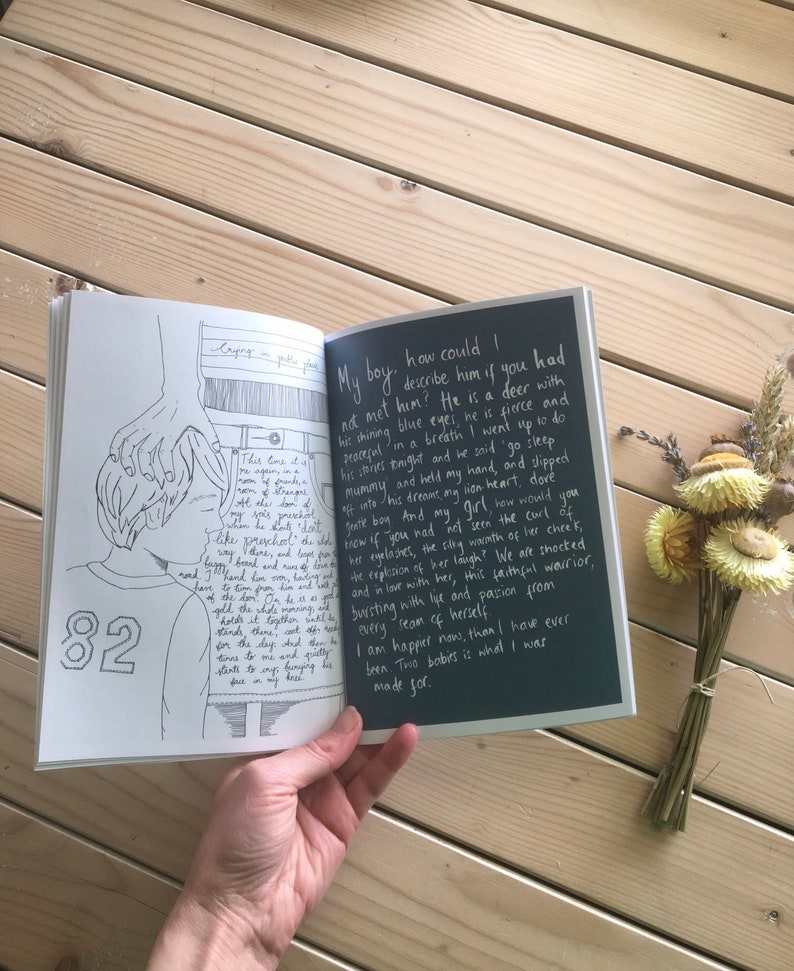 Crying in public places
This time it is
me again, in a
room of friends, a
room of strangers.
At the door of
my son's preschool
when he shouts 'don't
like preschool' the whole
way there, and leaps from the
buggy board and runs off down the
road. I hand him over, howling and
have to turn from him and walk out
of the door. Or he is as good as
gold the whole morning, and
holds it together until he
stands there, coat off, ready
for the day. And then he
turns to me and quietly
starts to cry, burying his
face in my knee.
82
My boy, how could I
describe him if you had
not met him? He is a deer with
his shining blue eyes, he is fierce and
peaceful in a breath. I went up to do
his stories tonight and he said 'go sleep
mummy' and held my hand, and slipped
off into his dreams, my lion heart, dove
gentle boy. And my girl, how would you
know if you had not seen the curl of
her eyelashes, the silky warmth of her cheek,
the explosion of her laugh? We are shocked
and in love with her, this faithful warrior,
bursting with life and passion from
every seam of herself.
I am happier now, than I have ever
been. Two babies is what I was
made for.